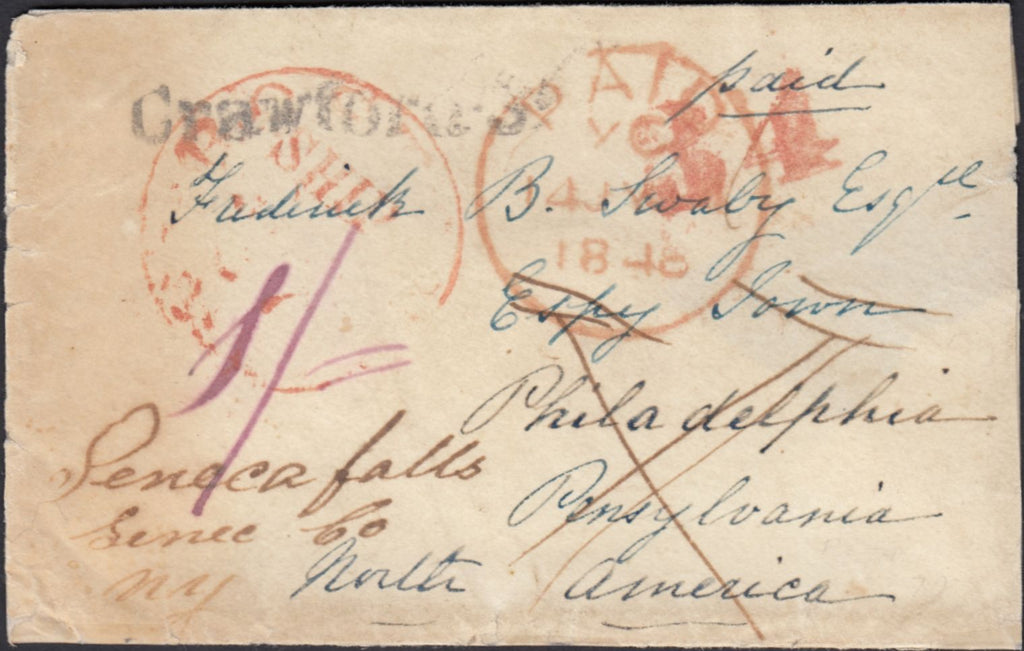 paid
Crawford
PAID
34
SHIP
Frederick B. Swaby Esqre
1846
1/=
Espy Town
Philadelphia
Seneca falls
Pensylvania
Senec Co
North America
NY